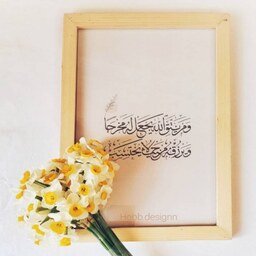 ومن يتق الله يجعل له مخرجا
ويرزقه من حيث لا يحتسب
Hebh.designn